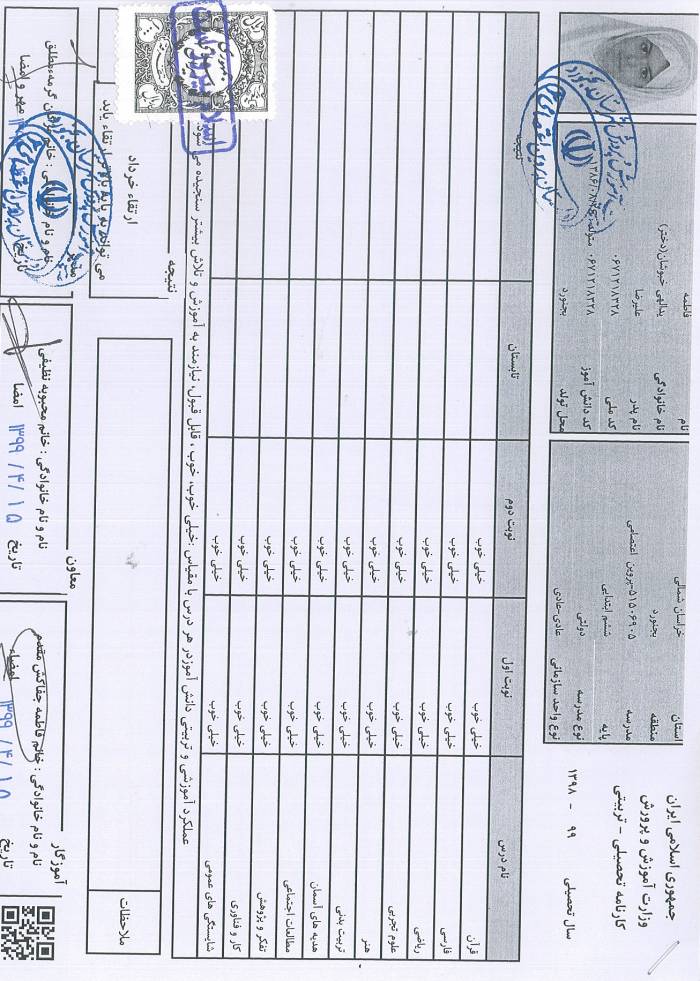 جمهوری اسلامی ایران
وزارت آموزش و پرورش
کارنامه تحصیلی - تربیتی
سال تحصیلی ۹۹ - ۱۳۹۸
استان خراسان شمالی
منطقه بجنورد
مدرسه ۵۱۵۰۶۹۰۵-پروین اعتصامی
پایه ششم ابتدایی
نوع مدرسه دولتی
نوع واحد سازمانی عادی-عادی
نام فاطمه
نام خانوادگی یدالهی خبوشان(دختر)
نام پدر علیرضا
کد ملی ۰۶۷۱۲۱۸۳۲۸
کد دانش آموز ۰۶۷۱۲۱۸۳۲۸ متولد
محل تولد بجنورد
نام درس نوبت اول نوبت دوم تابستان نتیجه
قرآن خیلی خوب خیلی خوب
فارسی خیلی خوب خیلی خوب
ریاضی خیلی خوب خیلی خوب
علوم تجربی خیلی خوب خیلی خوب
هنر خیلی خوب خیلی خوب
تربیت بدنی خیلی خوب خیلی خوب
هدیه های آسمان خیلی خوب خیلی خوب
مطالعات اجتماعی خیلی خوب خیلی خوب
تفکر و پژوهش خیلی خوب خیلی خوب
کار و فناوری خیلی خوب خیلی خوب
شایستگی های عمومی خیلی خوب خیلی خوب
عملکرد آموزشی و تربیتی دانش آموز در هر درس با مقیاس :خیلی خوب، خوب ، قابل قبول، نیازمند به آموزش و تلاش بیشتر سنجیده می شود.
ملاحظات
نتیجه
ارتقاء خرداد
می تواند به پایه بالاتر ارتقاء یابد
آموزگار
نام و نام خانوادگی : خانم فاطمه جفاکش مقدم
تاریخ ۱۳۹۹/۴/۱۵ امضاء
معاون
نام و نام خانوادگی : خانم محبوبه نظیفی
تاریخ ۱۳۹۹/۴/۱۵ امضا
مدیر
نام و نام خانوادگی : خانم
تاریخ مهر و امضا